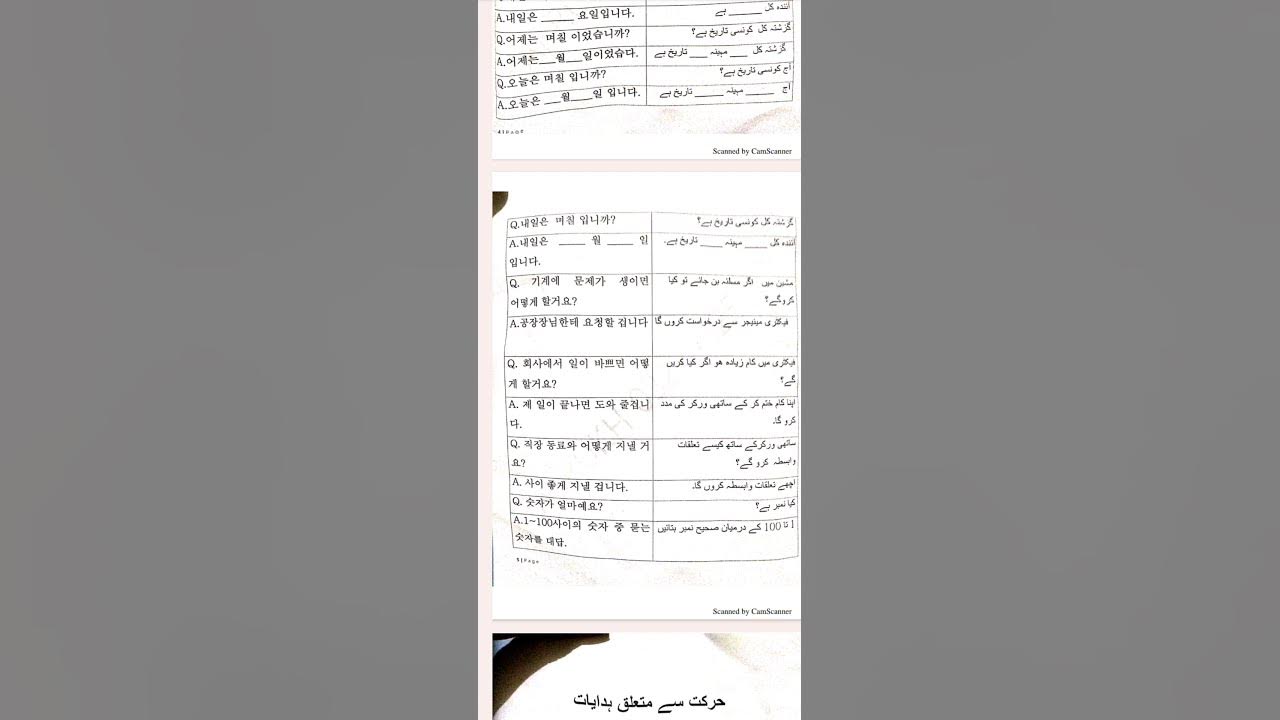 A.내일은 ______ 요일입니다.
آئندہ کل ______ ہے
Q.어제는 며칠 이었습니까?
گزشتہ کل کونسی تاریخ ہے؟
A.어제는___월___일이었습다.
گزشتہ کل ___ مہینہ ___ تاریخ ہے
Q.오늘은 며칠 입니까?
آج کونسی تاریخ ہے؟
A.오늘은 ___월____일 입니다.
آج _____ مہینہ _____ تاریخ ہے
4 | P a g e
Scanned by CamScanner
Q.내일은 며칠 입니까?
گزشتہ کل کونسی تاریخ ہے؟
A.내일은 _____ 월 _____ 일
آئندہ کل _____ مہینہ _____ تاریخ ہے.
입니다.
Q. 기계에 문제가 생이면
مشین میں اگر مسئلہ بن جائے تو کیا
어떻게 할거요?
کروگے؟
A.공장장님한테 요청할 겁니다
فیکٹری مینیجر سے درخواست کروں گا
Q. 회사에서 일이 바쁘면 어떻
فیکٹری میں کام زیادہ ھو اگر کیا کریں
게 할거요?
گے؟
A. 제 일이 끝나면 도와 줄겁니
اپنا کام ختم کر کے ساتھی ورکر کی مدد
다.
کرو گا.
Q. 직장 동료와 어떻게 지낼 거
ساتھی ورکرکے ساتھ کیسے تعلقات
요?
وابسطہ کرو گے؟
A. 사이 좋게 지낼 겁니다.
اچھے تعلقات وابسطہ کروں گا.
Q. 숫자가 얼마예요?
کیا نمبر ہے؟
A.1~100사이의 숫자 중 묻는
1 تا 100 کے درمیان صحیح نمبر بتائیں
숫자를 대답.
5 | P a g e
Scanned by CamScanner
حرکت سے متعلق ہدایات